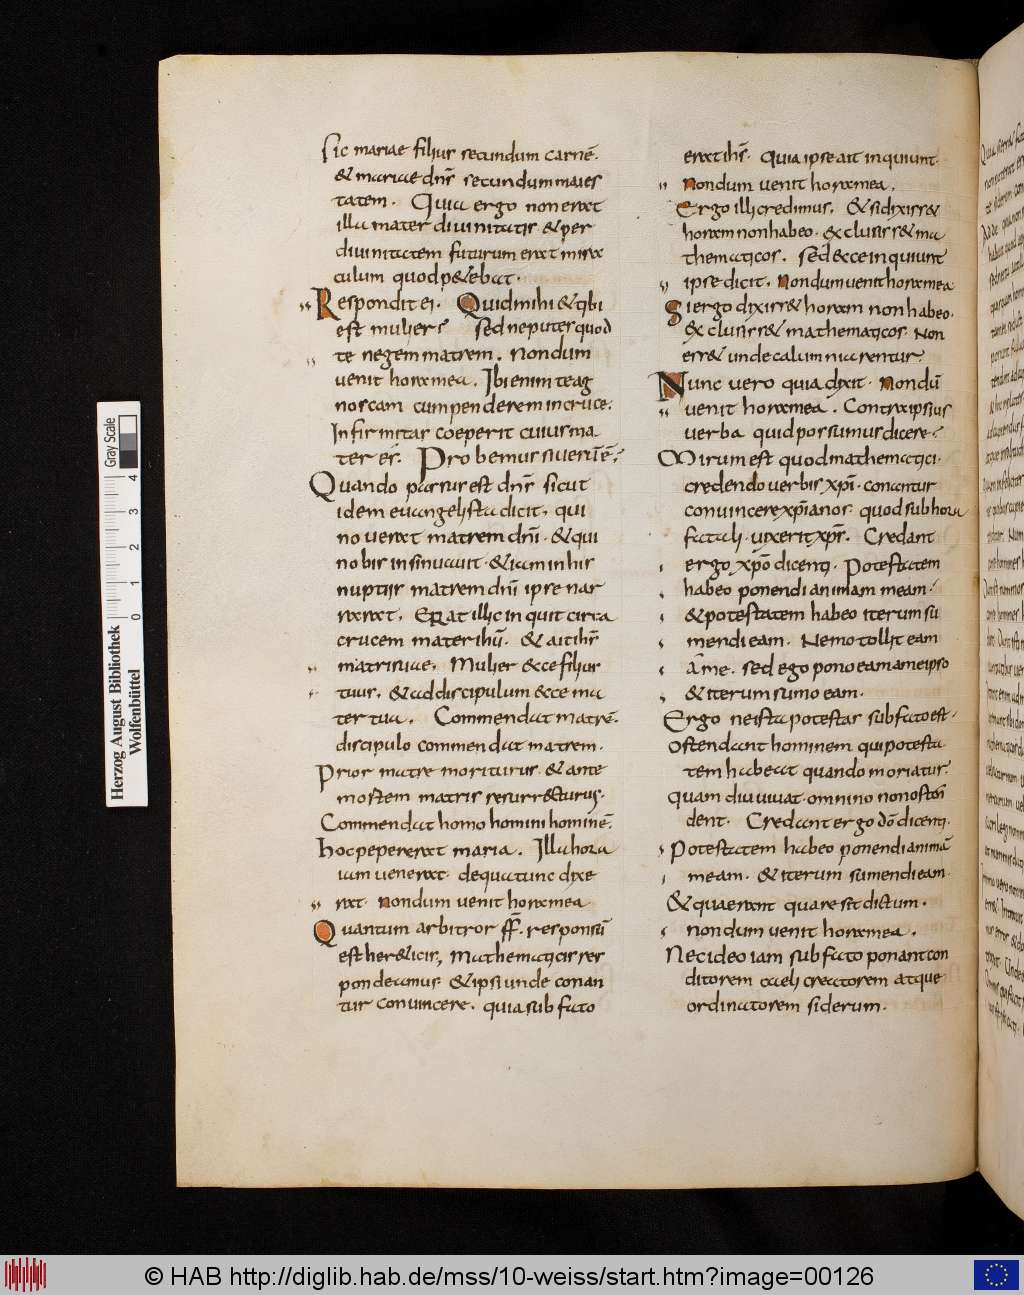 Sic mariae filius secundum carnē.
& mariae dn̄s secundum maies
tatem. Quia ergo non erat
illa mater divinitatis & per
divinitatem futurum erat mira
culum quod p&ebat.
Respondit ei. Quid mihi & tibi
est mulier? sed ne putes quod
te negem matrem. Nondum
venit hora mea. Ibi enim te ag
noscam cum pendere in cruce.
Infirmitas coeperit cuius ma
ter es. Probemus si verū ē?
Quando passus est dn̄s sicut
idem evangelista dicit. qui
noverat matrem dn̄i. & qui
nobis insinuavit. & iam in his
nuptiis matrem dn̄i ipse nar
rarat. Erat illic inquit circa
crucem mater ihū. & ait ihs̄
matri suae. Mulier ecce filius
tuus. & ad discipulum ecce ma
ter tua. Commendat matrē.
discipulo commendat matrem.
Prior matre moriturus. & ante
mostem matris resurrecturus.
Commendat homo homini hominē.
hoc pepererat maria. Illa hora
iam venerat. de qua tunc dixe
rat. nondum venit hora mea
Quantum arbitror ff̄. responsū
est her&icis, Mathematicis res
pondeamus. & ipsi unde conan
tur convincere. quia sub fato
erat ihs̄. Quia ipse ait inquiunt.
nondum venit hora mea.
Ergo illi credimus. & si dixiss&
horam non habeo. excluss& ma
thematicos. Sed ecce inquiunt
ipse dicit. nondum venit hora mea
Si ergo dixiss& horam non habeo.
excluss& mathematicos. Non
err& unde calumniarentur?
Nunc vero quia dixit. Nondū
venit hora mea. Contra ipsius
verba quid possumus dicere?
Mirum est quod mathematici.
credendo verbis xp̄i. conantur
convincere xp̄ianos. quod sub hora
fatali. vixerit xp̄s. Credant
ergo xp̄o dicenti. Potestatem
habeo ponendi animam meam.
& potestatem habeo iterum su
mendi eam. Nemo tollit eam
a me. sed ego pono eam a me ipso
& iterum sumo eam.
Ergo ne ista potestas sub fato est.
Ostendant hominem qui potesta
tem habeat quando moriatur?
quam diu vivat. omnino non ostēn
dent. Credant ergo dō dicenti.
Potestatem habeo ponendi animā
meam. & iterum sumendi eam.
& quaerant quare sit dictum.
nondum venit hora mea.
Nec ideo iam sub fato ponant con
ditorem caeli creatorem atque
ordinatorem siderum.
Herzog August Bibliothek
Wolfenbüttel
Gray Scale
0 1 2 3 4
© HAB http://diglib.hab.de/mss/10-weiss/start.htm?image=00126